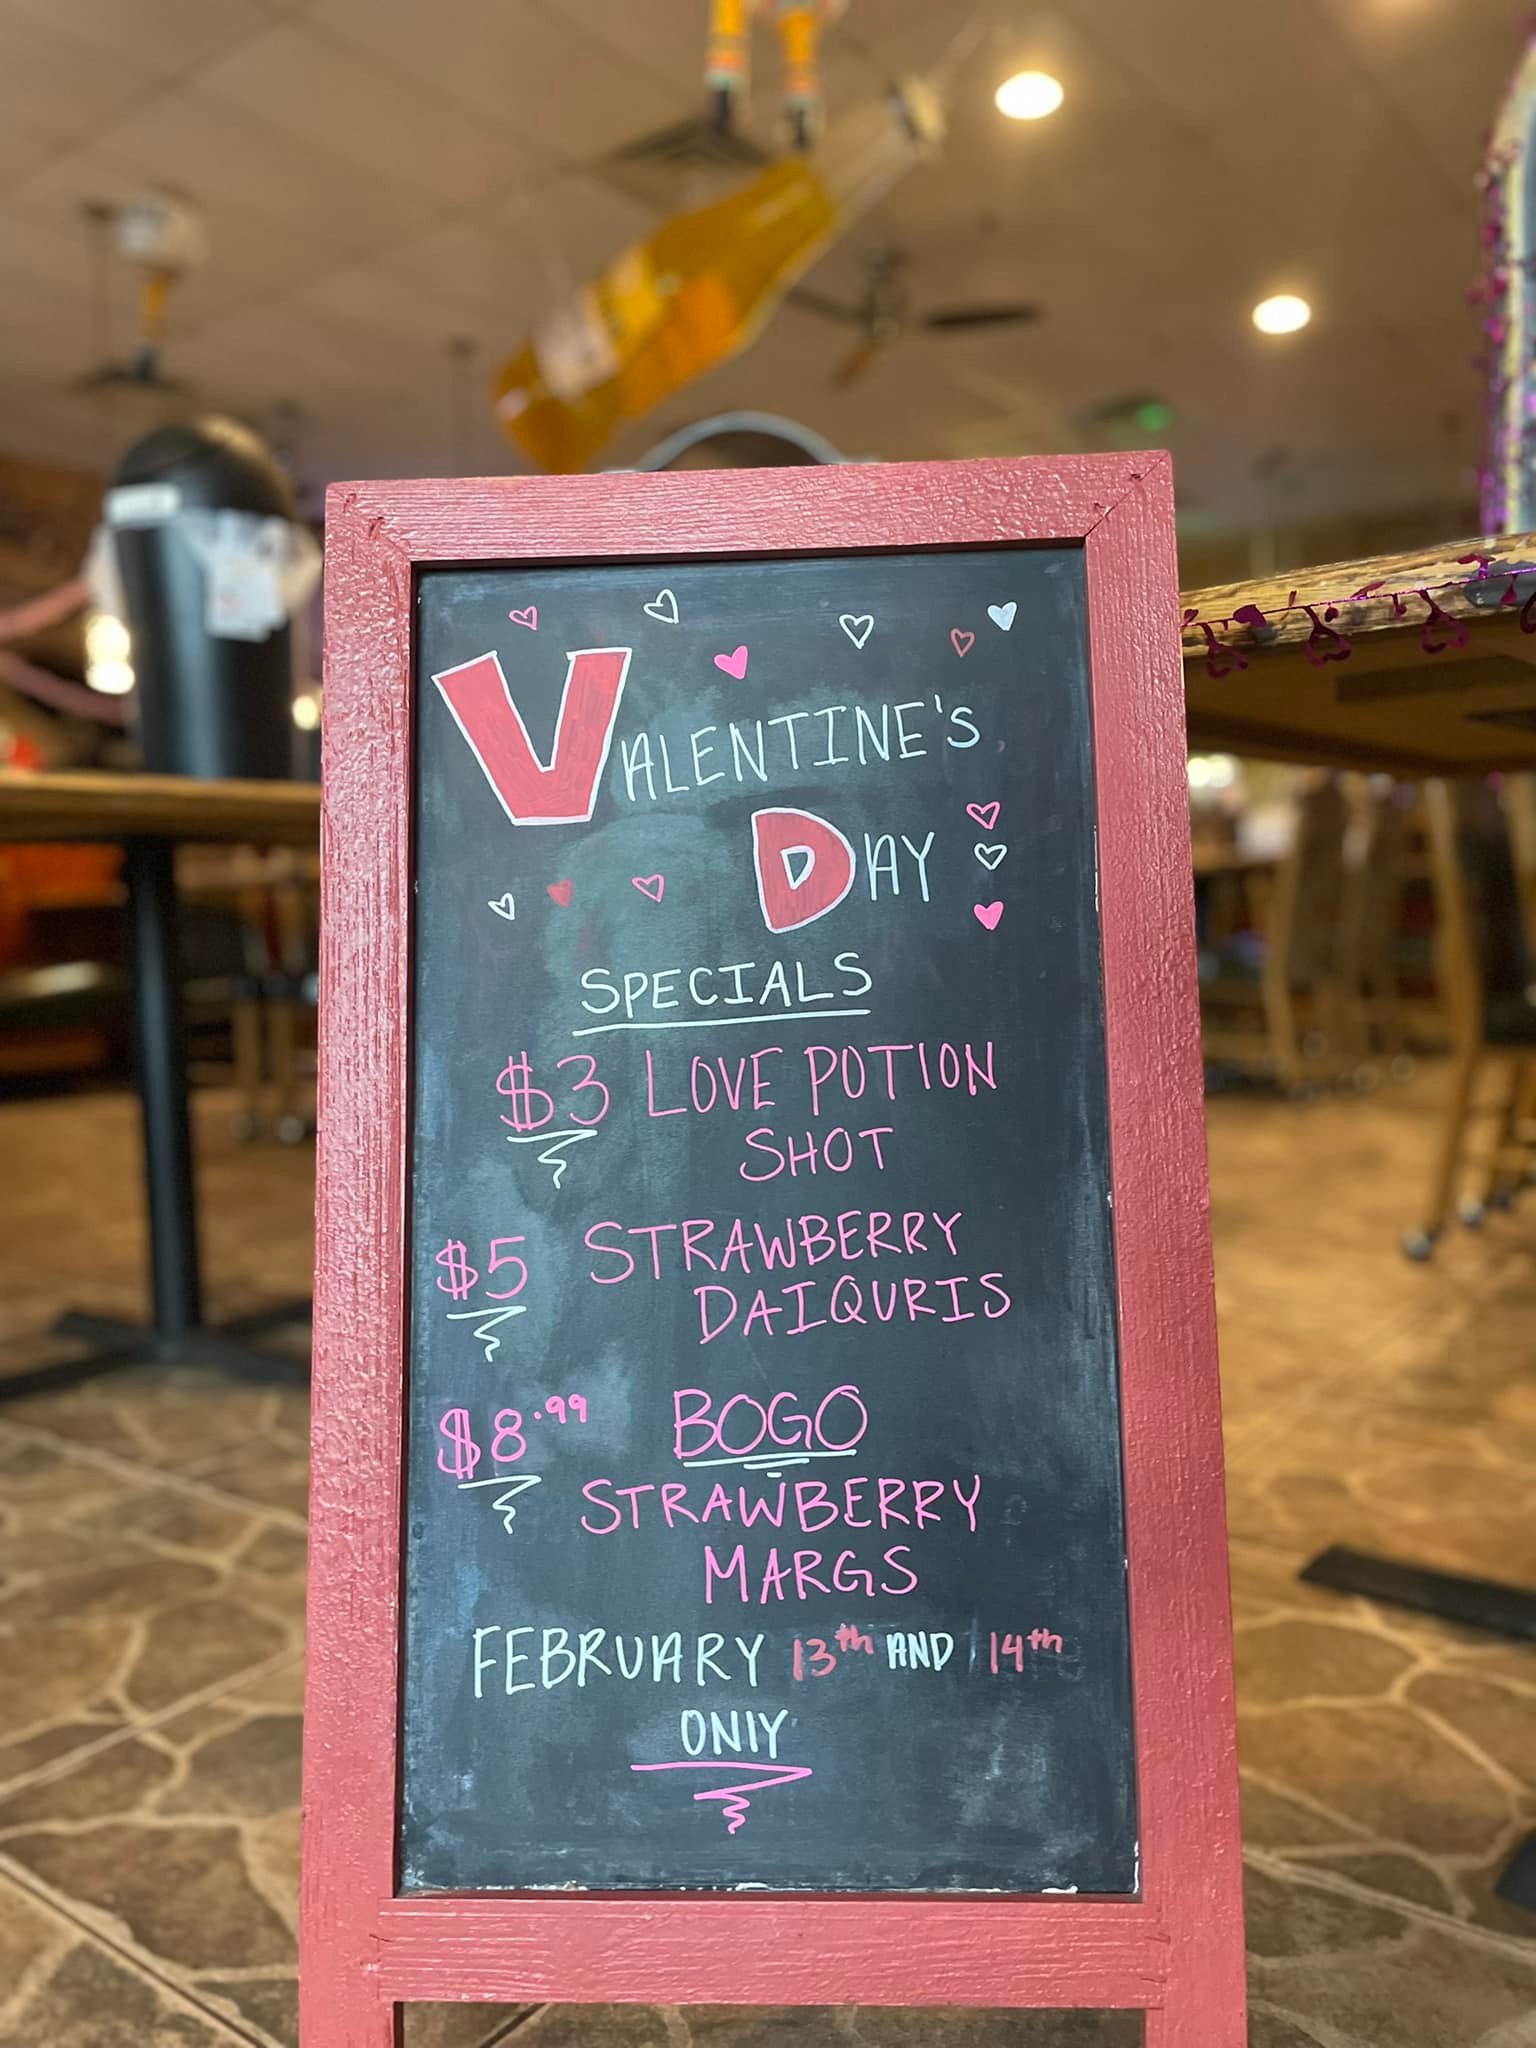 VALENTINE'S
DAY
SPECIALS
$3 LOVE POTION
SHOT
$5 STRAWBERRY
DAIQURIS
$8.99 BOGO
STRAWBERRY
MARGS
FEBRUARY 13th AND 14th
ONlY